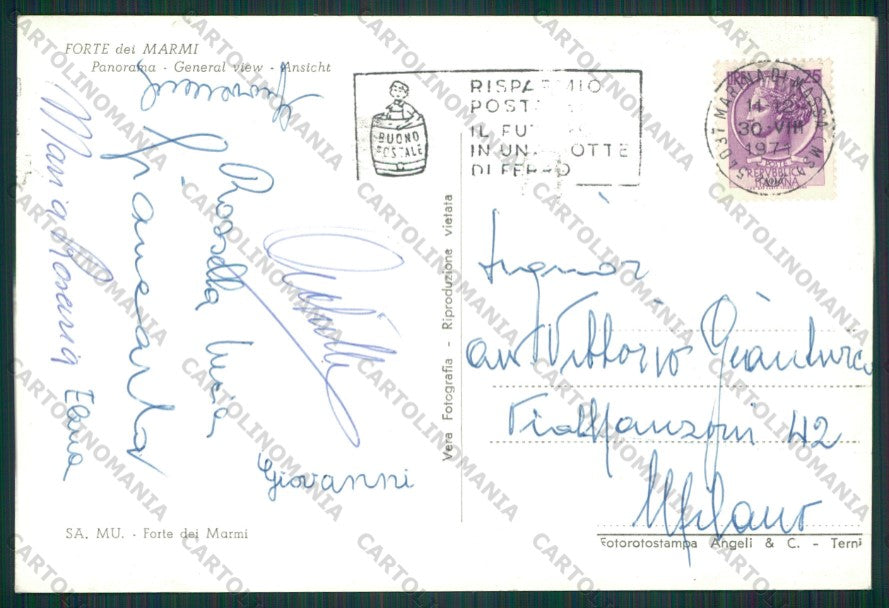 FORTE dei MARMI
Panorama - General view - Ansicht
Maria Rosaria Elena
Giancarla
Rossella Lucia
Giovanni
SA. MU. - Forte dei Marmi
Vera Fotografia - Riproduzione vietata
BUONO
POSTALE
RISPARMIO
POSTALE
IL FUTURO
IN UNA BOTTE
DI FERRO
54037 MARINA DI MASSA MS
30 VIII
LIRE 25
POSTE
REPVBBLICA
ITALIANA
Signor
avv Vittorio Gianturco
Via Manzoni 42
Milano
Fotorotostampa Angeli & C. - Terni
CARTOLINOMANIA